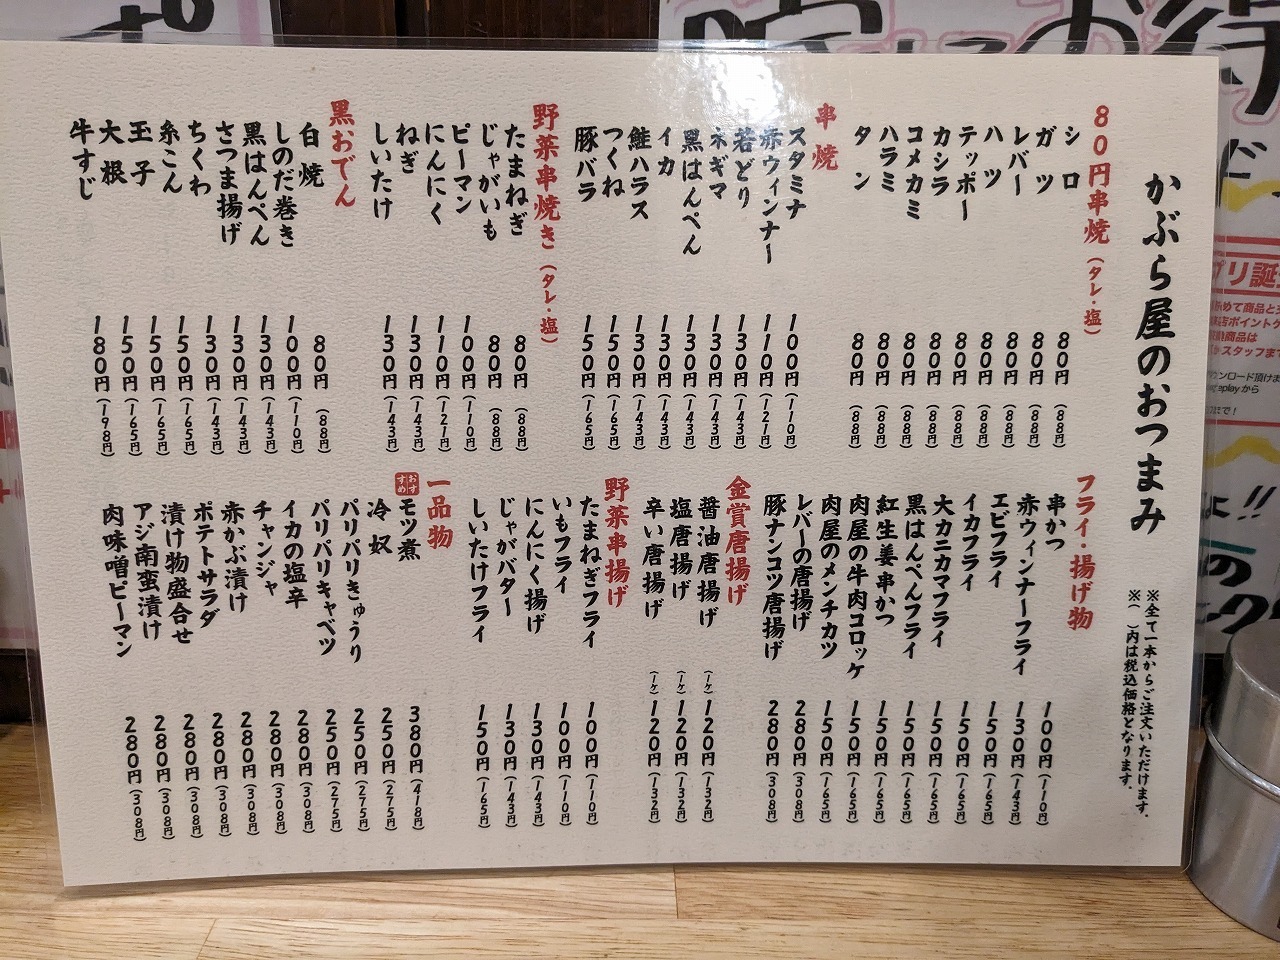 かぶら屋のおつまみ
※全て一本からご注文いただけます。
※( )内は税込価格となります。
80円串焼(タレ・塩)
シロ 80円(88円)
ガツ 80円(88円)
レバー 80円(88円)
ハツ 80円(88円)
テッポー 80円(88円)
カシラ 80円(88円)
コメカミ 80円(88円)
ハラミ 80円(88円)
タン 80円(88円)
串焼
スタミナ 100円(110円)
赤ウィンナー 110円(121円)
若どり 130円(143円)
ネギマ 130円(143円)
黒はんぺん 130円(143円)
イカ 130円(143円)
鮭ハラス 130円(143円)
つくね 150円(165円)
豚バラ 150円(165円)
野菜串焼き(タレ・塩)
たまねぎ 80円(88円)
じゃがいも 80円(88円)
ピーマン 100円(110円)
にんにく 110円(121円)
ねぎ 130円(143円)
しいたけ 130円(143円)
黒おでん
白焼 80円(88円)
しのだ巻き 100円(110円)
黒はんぺん 130円(143円)
さつま揚げ 130円(143円)
ちくわ 130円(143円)
糸こん 150円(165円)
玉子 150円(165円)
大根 150円(165円)
牛すじ 180円(198円)
フライ・揚げ物
串かつ 100円(110円)
赤ウィンナーフライ 130円(143円)
エビフライ 150円(165円)
イカフライ 150円(165円)
大カニカマフライ 150円(165円)
黒はんぺんフライ 150円(165円)
紅生姜串かつ 150円(165円)
肉屋の牛肉コロッケ 150円(165円)
肉屋のメンチカツ 150円(165円)
レバーの唐揚げ 280円(308円)
豚ナンコツ唐揚げ 280円(308円)
金賞唐揚げ
醤油唐揚げ (1ケ)120円(132円)
塩唐揚げ (1ケ)120円(132円)
辛い唐揚げ (1ケ)120円(132円)
野菜串揚げ
たまねぎフライ 100円(110円)
いもフライ 100円(110円)
にんにく揚げ 130円(143円)
じゃがバター 130円(143円)
しいたけフライ 150円(165円)
一品物
おすすめ モツ煮 380円(418円)
冷奴 250円(275円)
パリパリきゅうり 250円(275円)
パリパリキャベツ 250円(275円)
イカの塩辛 280円(308円)
チャンジャ 280円(308円)
赤かぶ漬け 280円(308円)
ポテトサラダ 280円(308円)
漬け物盛合せ 280円(308円)
アジ南蛮漬け 280円(308円)
肉味噌ピーマン 280円(308円)